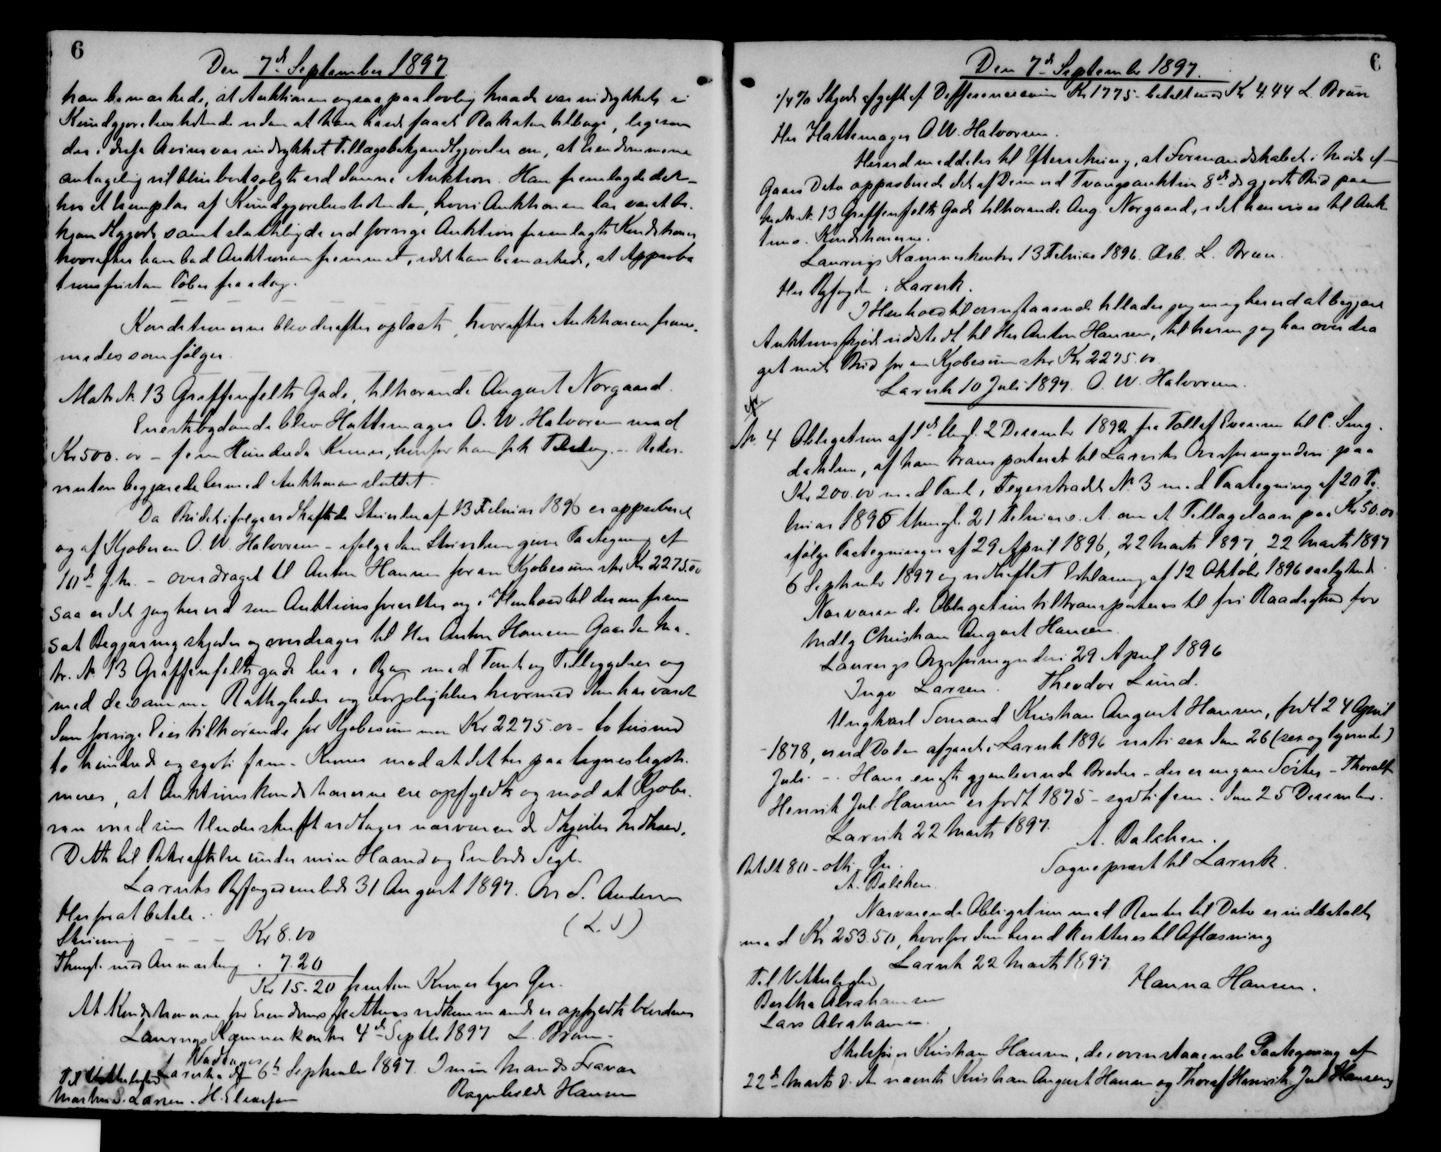 6
Den 7de September 1897
han bemærkede, at Auktionen ogsaa paa lovlig Maade var indrykket i
Kundgjørelsestidende uden at han havde faaet Plakaten tilbage, ligesom
der i disse Aviser var indrykket Tillægsbekjendtgjørelse om, at Eiendommene
antagelig vil blive bortsolgte ved denne Auktion. Han fremlagde der-
hos et Exemplar af Kundgjørelsestidenden, hvori Auktionen har været be-
kjendtgjort, samt de ved forrige Auktion fremlagte Konditioner
hvorefter han bad Auktionen fremmet, idet han bemærkede, at Approba
tionsfristen løber fra idag.
Konditionerne blev derefter oplæst, hvorefter Auktionen frem-
medes som følger.
Matr. N. 13 Griffenfelts Gade, tilhørende August Norgaard.
Enestbydende blev Hattemager O. W. Halvorsen med
Kr 500.00 - fem Hundrede Kroner, hvorfor han fik Tilslag. - Rekvi-
renten begjærede hermed Auktionen sluttet.
Da Budet ifølge vedhæftede Skrivelse af 13 Februar 1896 er approberet
og af Kjøberen O. W. Halvorsen - ifølge den Skrivelsen givne Paategning af
10de f. M. - overdraget til Anton Hansen for en Kjøbesum stor Kr 2275.00
saa er det jeg herved som Auktionsforvalter og i Henhold til derom frem
sat Begjæring skjøder og overdrager til Hr Anton Hansen Gaarden Ma-
tr. N. 13 Griffenfeltsgade her i Byen med Tomt og Tilliggelser og
med de samme Rettigheder og Forpligtelser hvormed den har været
den forrige Eier tilhørende for Kjøbesummen Kr 2275.00 - to tusind
to hundred og sytti fem - Kroner mod at det her paa tegnes
meres, at Auktionskonditionerne ere opfyldte og mod at Kjøbe-
ren med sin Underskrift vedtager nærværende Skjødes Indhold.
Dette til Bekræftelse under min Haand og Embeds Segl.
Larviks Byfogedembede 31 August 1897. S. Andersen
(L. S)
Herfor at betale:
Skrivning - - - Kr 8.00
Thingl. med Anmærkning . 7.20
Kr 15-20 femten Kroner tyve Øre.
At Konditionerne for Eiendoms vedkommende er opfyldt bevidnes
Laurvigs Kæmnerkontor 4de Septbr 1897 L. Bruun
Vedtages
Larvik 6te September 1897 I min Mands Fravær
Til Vitterlighed
Ragnhilde Hansen
Marthin S. Larsen. H. Ellefsen
6
Den 7de September 1897.
1/4 % Skjødeafgift af Differencesum Kr 1775 - betalt med Kr 4.44 L Bruun
Hr Hattemager O W. Halvorsen.
Herved meddeles til Efterretning, at Formandskabet i Møde af
Gaars Dato approberede det af Dem ved Tvangsauktion 8de ds gjorte Bud paa
Matr N. 13 Griffenfelts Gade tilhørende Aug. Norgaard, idet henvises til Auk
tions Konditionerne.
Laurvigs Kæmnerkontor 13 Februar 1896. Ærb. L. Bruun.
Hr Byfogden i Larvik.
I Henhold til ovenstaaende tillader jeg mig herved at begjære
Auktionsskjøde udstedt til Hr Anton Hansen, til hvem jeg har overdra
get mit Bud for en Kjøbesum stor Kr 2275.00
Larvik 10 Juli 1897. O. W. Halvorsen.
N 4 Obligation af 1ste thgl. 2 December 1892 fra Tollef Evensen til C. Ting-
dahlen, af ham transporteret til Larviks Overformynderi paa
Kr 200.00 med Pant i Fegerstrædet N. 3 med Paategning af 20 Fe-
bruar 1895 thingl. 21 Februar s. A om et Tillægslaan paa Kr 50.00
ifølge Paategninger af 29 April 1896, 22 Marts 1897, 22 Marts 1897
6 September 1897 og vedhæftet Erklæring af 12 Oktober 1896 saalydende
Nærværende Obligation tiltransporteres til fri Raadighed for
Mdlg Christian August Hansen.
Laurvigs Overformynderi 29 April 1896
Inge Larsen. Theodor Lund.
Ungkarl Sømand Kristian August Hansen, født 24 April
1878, er ved Døden afgaaet i Larvik 1896 nitti sex den 26 (sex og tyvende)
Juli. - Hans eneste gjenlevende Broder - der er ingen Søster - Thoralf
Henrik Jul. Hansen er født 1875 - sytti fem - den 25 December.
Larvik 22 Marts 1897.
A. Balchen.
Sogneprest til Larvik.
Betalt 80 - otti Øre.
A. Balchen.
Nærværende Obligation med Renter til Dato er indbetalt
med Kr 253.50, hvorfor den herved kvitteres til Aflæsning
Larvik 22 Marts 1897
Hanna Hansen.
Til Vitterlighed
Bertha Abrahamsen
Lars Abrahamsen.
Skibsfører Kristian Hansen, de i ovenstaaende Paategning af
22de Marts d. A nævnte Kristian August Hansen og Thoralf Henrik Jul Hansens